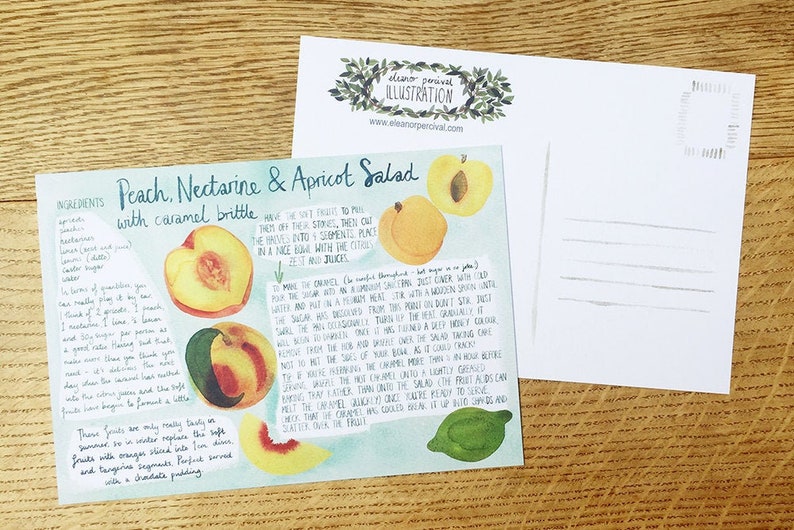 Peach, Nectarine & Apricot Salad
with caramel brittle
INGREDIENTS
apricots
peaches
nectarines
limes (zest and juice)
lemons (ditto)
caster sugar
water
In terms of quantities you
can really play it by ear.
I think of 2 apricots, 1 peach,
1 nectarine, 1 lime, ½ lemon
and 50g sugar per person as
a good ratio. Having said that,
make more than you think you
need - it's delicious the next
day when the caramel has melted
into the citrus juices and the soft
fruits have begun to ferment a little.
These fruits are only really tasty in
summer, so in winter replace the soft
fruits with oranges sliced into 1cm discs,
and tangerine segments. Perfect served
with a chocolate pudding.
HAVE THE SOFT FRUITS, TO PULL
THEM OFF THEIR STONES, THEN CUT
THE HALVES INTO 4 SEGMENTS. PLACE
IN A NICE BOWL WITH THE CITRUS
ZEST AND JUICES.
TO MAKE THE CARAMEL (be careful throughout - hot sugar is no joke!)
POUR THE SUGAR INTO AN ALUMINIUM SAUCEPAN, JUST COVER WITH COLD
WATER AND PUT ON A MEDIUM HEAT. STIR WITH A WOODEN SPOON UNTIL
THE SUGAR HAS DISSOLVED. FROM THIS POINT ON DON'T STIR, JUST
SWIRL THE PAN OCCASIONALLY. TURN UP THE HEAT. GRADUALLY, IT
WILL BEGIN TO DARKEN. ONCE IT HAS TURNED A DEEP HONEY COLOUR,
REMOVE FROM THE HOB AND DRIZZLE OVER THE SALAD TAKING CARE
NOT TO HIT THE SIDES OF YOUR BOWL, AS IT COULD CRACK!
TIP IF YOU'RE PREPARING THE CARAMEL MORE THAN ½ AN HOUR BEFORE
SERVING, DRIZZLE THE HOT CARAMEL ONTO A LIGHTLY GREASED
BAKING TRAY RATHER THAN ONTO THE SALAD (THE FRUIT ACIDS CAN
MELT THE CARAMEL QUICKLY). ONCE YOU'RE READY TO SERVE
CHECK THAT THE CARAMEL HAS COOLED, BREAK IT UP INTO SHARDS AND
SCATTER OVER THE FRUIT.
eleanor percival
ILLUSTRATION
www.eleanorpercival.com